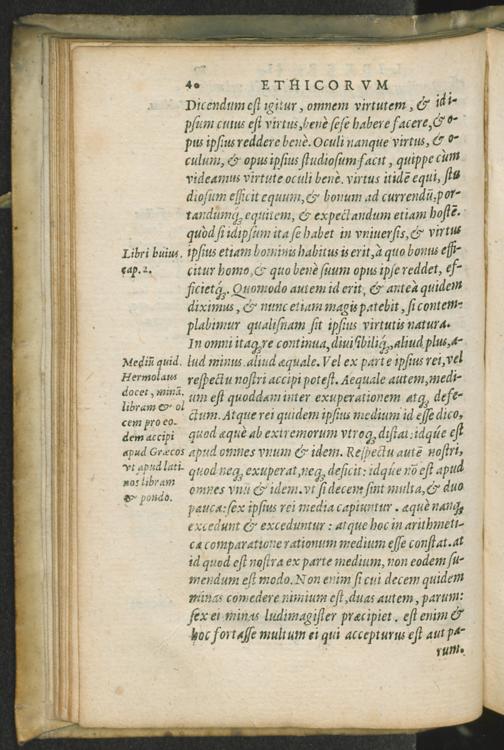 40 ETHICORVM
Dicendum est igitur, omnem virtutem, & idi-
psum cuius est virtus, benè sese habere facere, & o-
pus ipsius reddere benè. Oculi nanque virtus, & o-
culum, & opus ipsius studiosum facit, quippe cùm
videamus virtute oculi benè. virtus itidē equi, stu
diosum efficit equum, & bonum ad currendū, por-
tandumq́, equitem, & expectandum etiam hostē.
quòd si idipsum ita se habet in vniuersis, & virtus
ipsius etiam hominis habitus is erit, à quo bonus effi-
citur homo, & quo benè suum opus ipse reddet, ef-
ficietq́. Quomodo autem id erit, & anteà quidem
diximus, & nunc etiam magis patebit, si contem-
plabimur qualisnam sit ipsius virtutis natura.
In omni itaq, re continua, diuisibiliq́, aliud plus, a-
lud minus, aliud æquale. Vel ex parte ipsius rei, vel
respectu nostri accipi potest. Aequale autem, medi-
um est quoddam inter exuperationem atq, defe-
ctum. Atque rei quidem ipsius medium id esse dico,
quod æquè ab extremorum vtroq, distat: idq́ue est
apud omnes vnum & idem. Respectu autē nostri,
quod neq, exuperat, neq, deficit: idq́ue nō est apud
omnes vnū & idem. vt si decem sint multa, & duo
pauca: sex ipsius rei media capiuntur. æquè nanq,
excedunt & exceduntur: atque hoc in arithmeti-
ca comparatione rationum medium esse constat. at
id quod est nostra ex parte medium, non eodem su-
mendum est modo. Non enim si cui decem quidem
minas comedere nimium est, duas autem, parum:
sex ei minas ludimagister præcipiet. est enim &
hoc fortasse multum ei qui accepturus est aut pa-
rum.
Libri huius.
cap. 2.
Mediū quid.
Hermolaus
docet, minā,
libram & ol
cem pro eo-
dem accipi
apud Græcos
vt apud lati-
nos libram
& pondo.